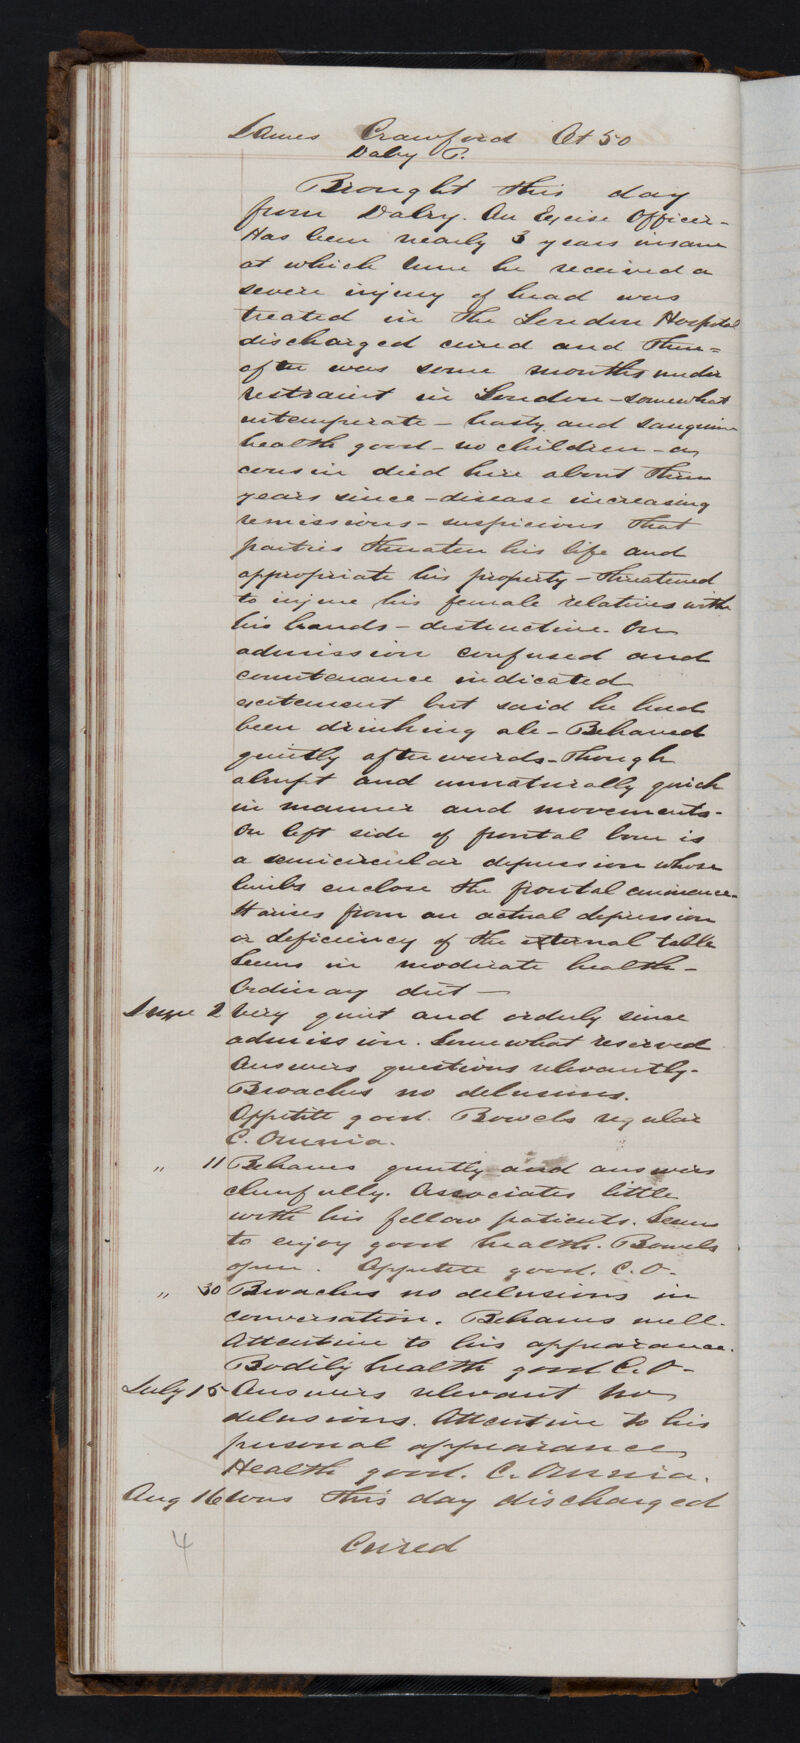 James Crawford Æt 50
Dalry P.
Brought this day
from Dalry. An Excise Officer -
Has been nearly 3 years insane
at which time he received a
severe injury of head was
treated in the London Hospital
discharged cured and there=
after was some months under
restraint in London - somewhat
intemperate - hasty and sanguine
health good - no children - a
cousin died here about three
years since - disease increasing
remissions - suspicious that
parties threaten his life and
appropriate his property - threatened
to injure his female relatives with
his hands - destructive. On
admission confused and
countenance indicated
excitement but said he had
been drinking ale - Behaved
quietly afterwards - though
abrupt and unnaturally quick
in manner and movements -
On left side of frontal bone is
a semicircular depression whose
limbs enclose the frontal eminence -
It arises from an actual depression
or deficiency of the external table
Seems in moderate health -
Ordinary diet —
June 2 Very quiet and orderly since
admission. Somewhat reserved
Answers questions relevantly -
Broaches no delusions.
Appetite good. Bowels regular
C. Omnia.
" 11 Behaves quietly and answers
cheerfully. Associates little
with his fellow patients. Seems
to enjoy good health. Bowels
open. Appetite good. C. O -
" 30 Broaches no delusions in
conversation. Behaves well.
Attentive to his appearance.
Bodily health good C. O -
July 15 Answers relevant no
delusions. Attentive to his
personal appearance
Health good. C. Omnia.
Aug 16 Was this day discharged
Cured
4